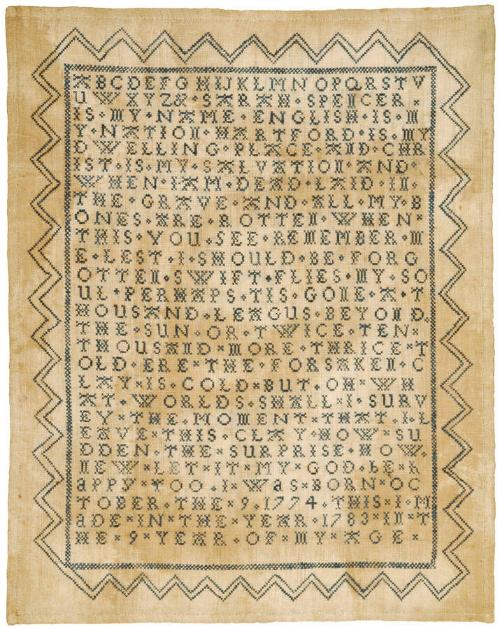 ABCDEFGHIJKLMNOPQRSTV
UWXYZ& SARAH SPENCER
IS MY NAME ENGLISH IS M
Y NATION HARTFORD IS MY
DWELLING PLACE AND CHR
IST IS MY SALVATION AND
WHEN I AM DEAD LAID IN
THE GRAVE AND ALL MY B
ONES ARE ROTTEN WHEN
THIS YOU SEE REMEMBER M
E LEST I SHOULD BE FORG
OTTEN SWIFT FLIES MY SO
UL PERHAPS TIS GONE A T
HOUSAND LEAGUS BEYOND
THE SUN OR TWICE TEN
THOUSAND MORE THRICE T
OLD ERE THE FORSAKEN C
LAY IS COLD BUT OH WH
AT WORLDS SHALL I SURV
EY THE MOMENT THAT I L
EAVE THIS CLAY HOW SU
DDEN THE SURPRISE HOW
NEW LET IT MY GOD BE H
aPPY TOO I WaS BORN OC
TOBER THE 9 1774 THIS I M
aDE IN THE YEAR 1783 IN T
HE 9 YEAR OF MY AGE